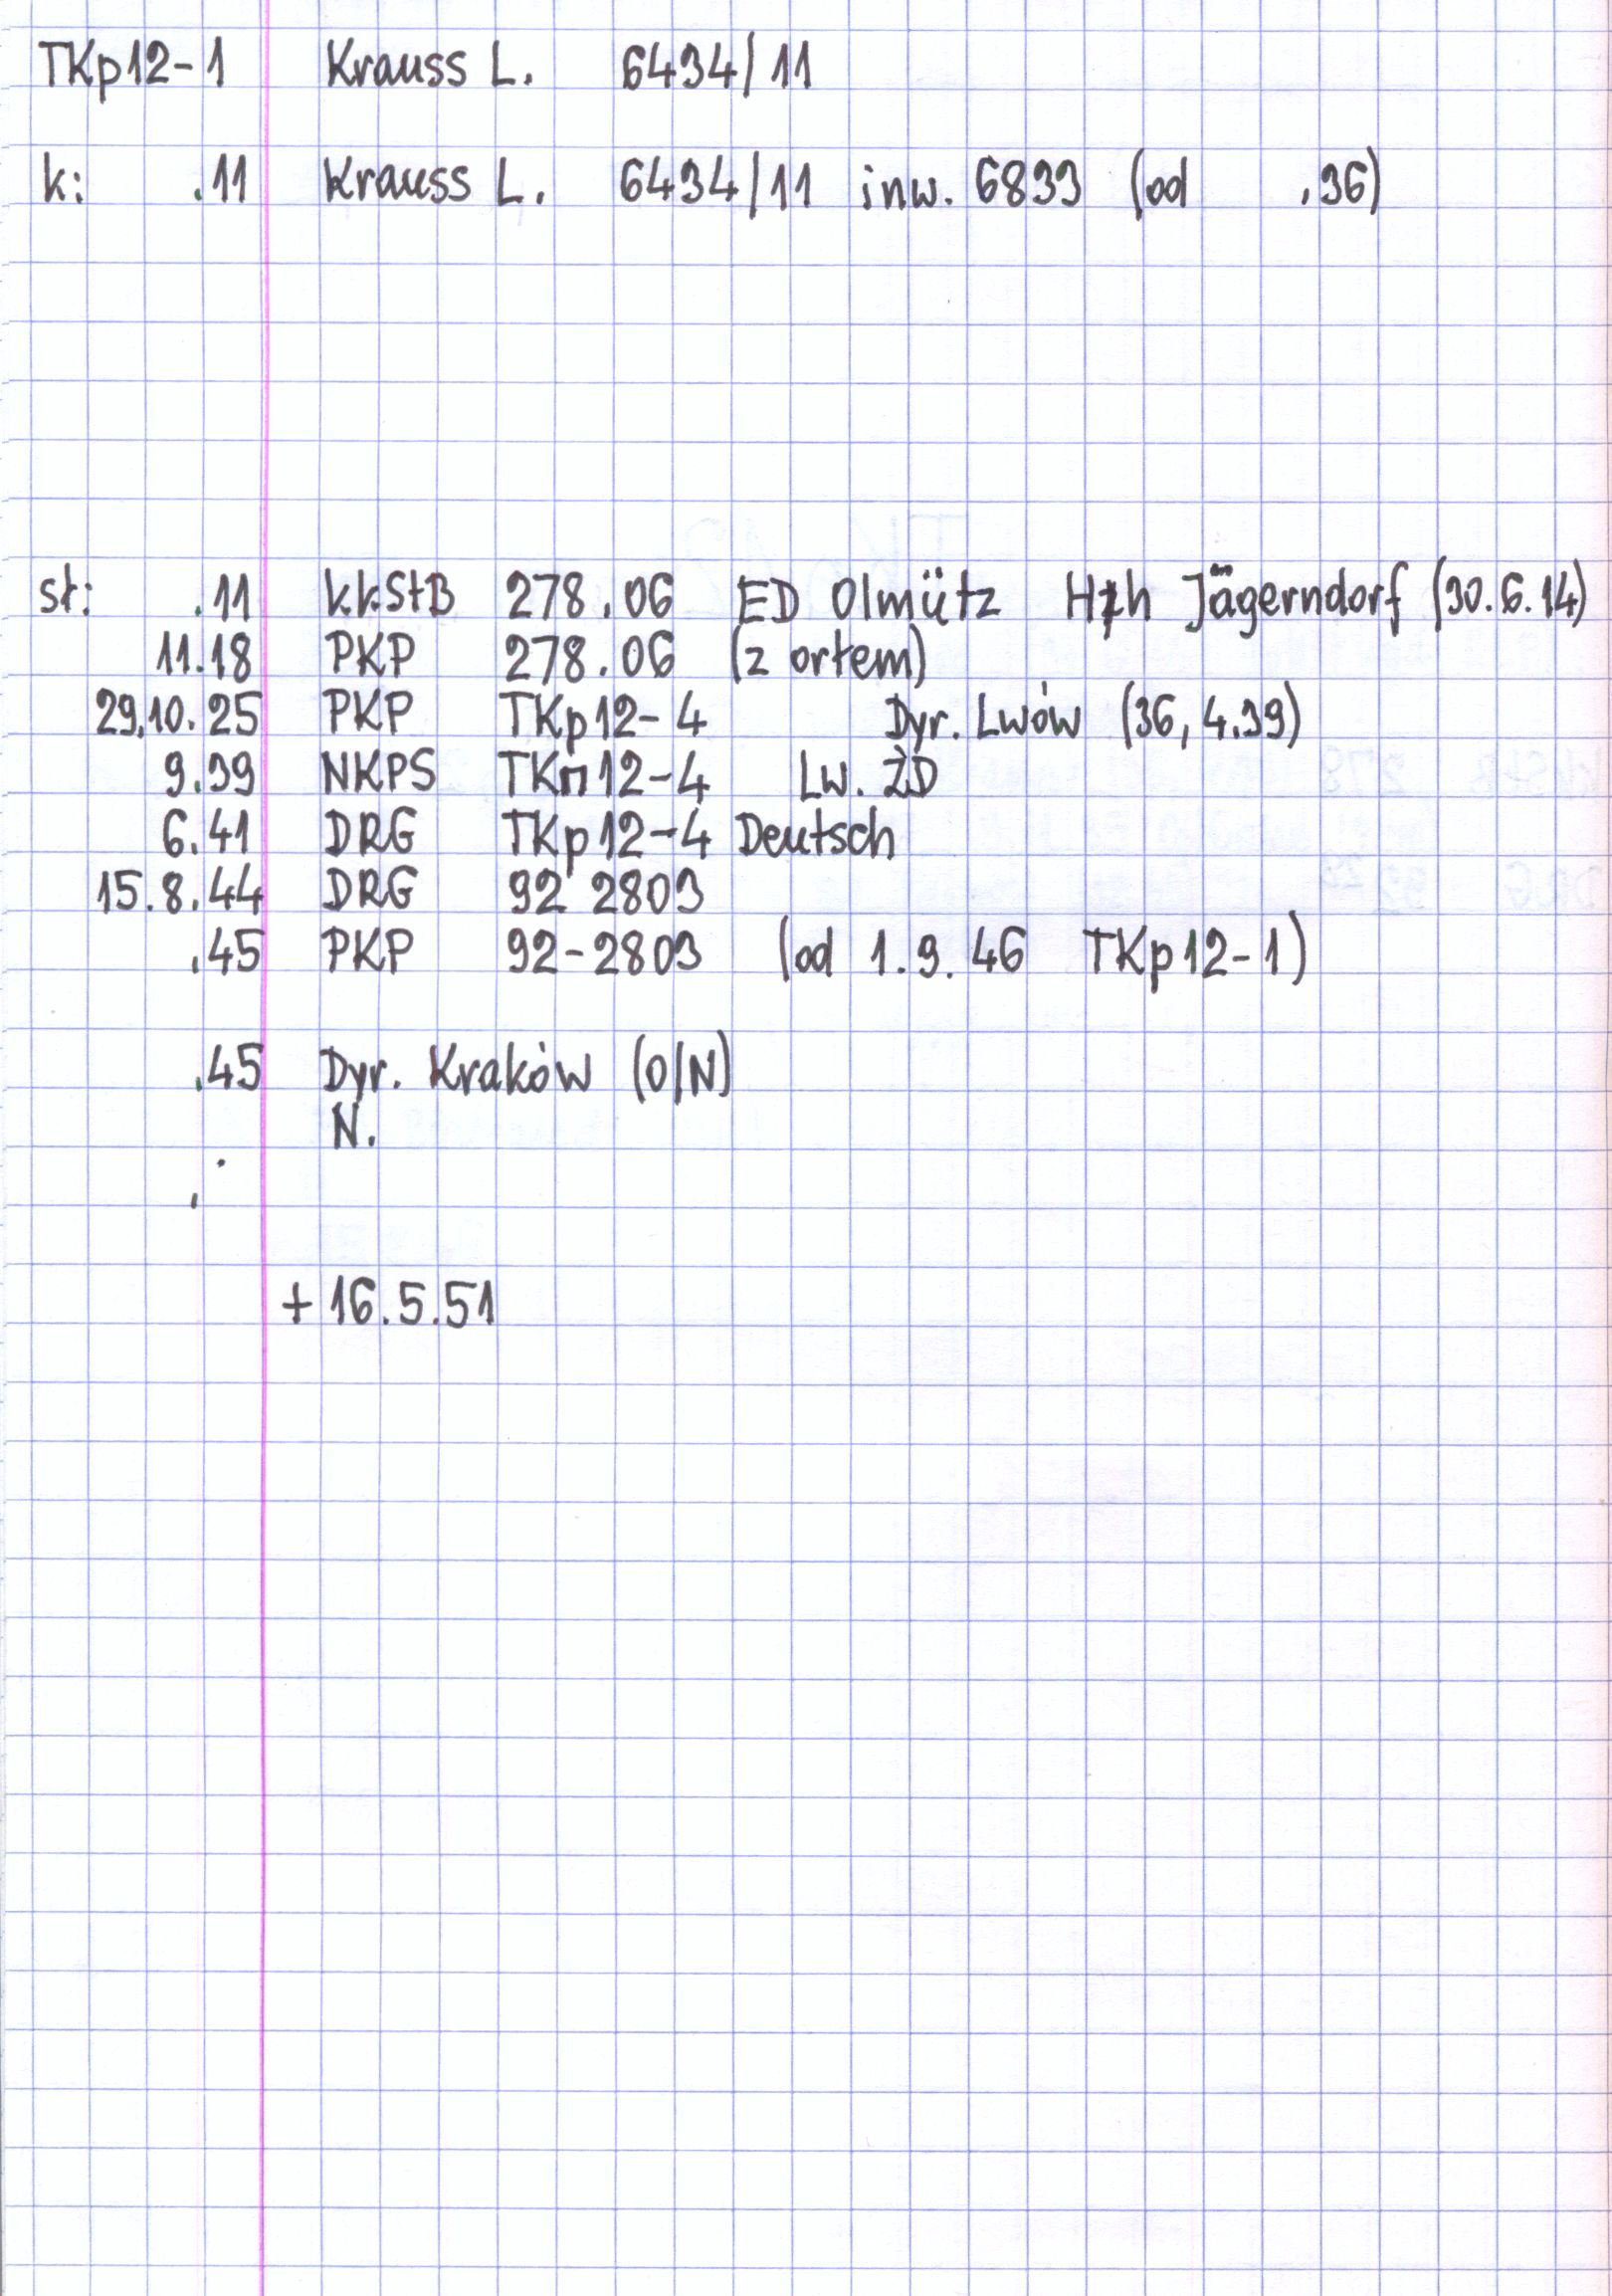 TKp12-1 Krauss L. 6434/11
k: .11 Krauss L. 6434/11 inw. 6833 (od .36)
st: .11 kkStB 278.06 ED Olmütz Hzh Jägerndorf (30.6.14)
11.18 PKP 278.06 (z ortem)
29.10.25 PKP TKp12-4 Dyr. Lwów (36, 4.39)
9.39 NKPS TKп12-4 Lw. ŻD
6.41 DRG TKp12-4 Deutsch
15.8.44 DRG 92 2803
.45 PKP 92-2803 (od 1.9.46 TKp12-1)
.45 Dyr. Kraków (O/N)
N.
+ 16.5.51